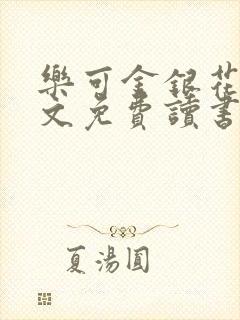 樂可金銀花
文免費讀書
夏湯圓